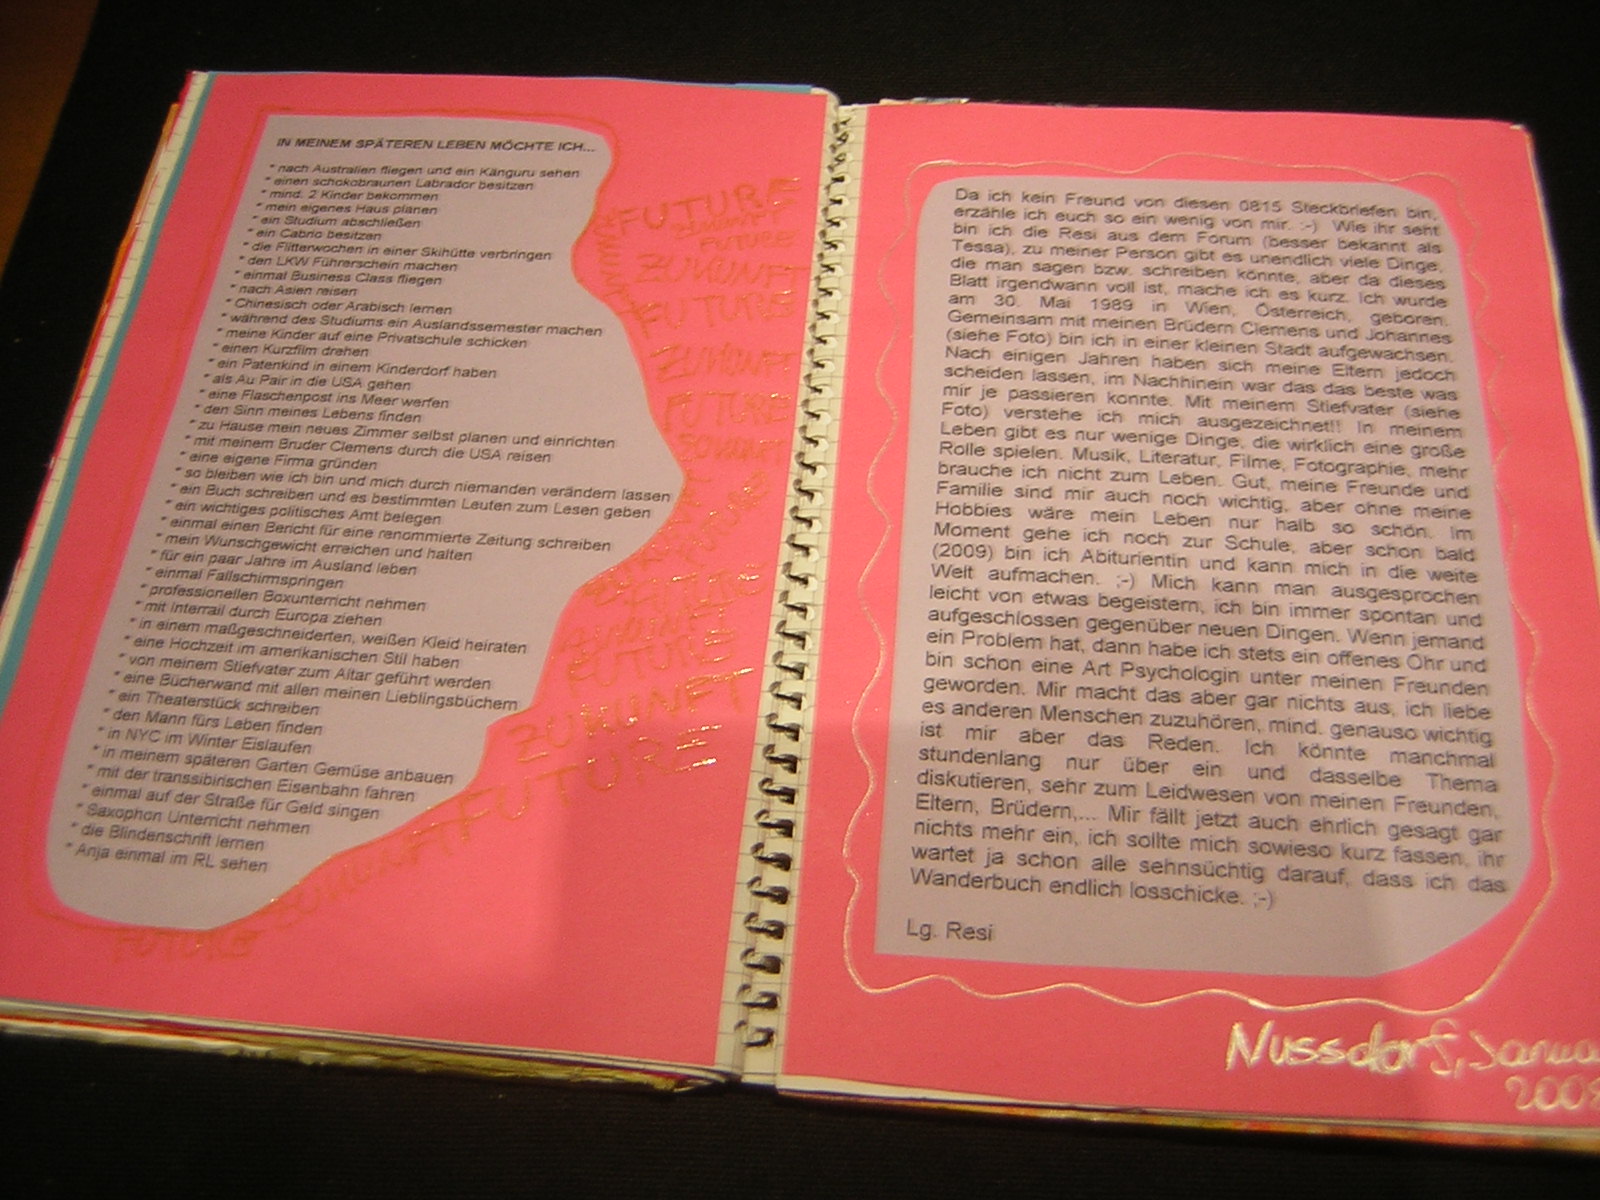 IN MEINEM SPÄTEREN LEBEN MÖCHTE ICH...
* nach Australien fliegen und ein Känguru sehen
* einen schokobraunen Labrador besitzen
* mind. 2 Kinder bekommen
* mein eigenes Haus planen
* ein Studium abschließen
* ein Cabrio besitzen
* die Flitterwochen in einer Skihütte verbringen
* den LKW Führerschein machen
* einmal Business Class fliegen
* nach Asien reisen
* Chinesisch oder Arabisch lernen
* während des Studiums ein Auslandssemester machen
* meine Kinder auf eine Privatschule schicken
* einen Kurzfilm drehen
* ein Patenkind in einem Kinderdorf haben
* als Au Pair in die USA gehen
* eine Flaschenpost ins Meer werfen
* den Sinn meines Lebens finden
* zu Hause mein neues Zimmer selbst planen und einrichten
* mit meinem Bruder Clemens durch die USA reisen
* eine eigene Firma gründen
* so bleiben wie ich bin und mich durch niemanden verändern lassen
* ein Buch schreiben und es bestimmten Leuten zum Lesen geben
* ein wichtiges politisches Amt belegen
* einmal einen Bericht für eine renommierte Zeitung schreiben
* mein Wunschgewicht erreichen und halten
* für ein paar Jahre im Ausland leben
* einmal Fallschirmspringen
* professionellen Boxunterricht nehmen
* mit Interrail durch Europa ziehen
* in einem maßgeschneiderten, weißen Kleid heiraten
* eine Hochzeit im amerikanischen Stil haben
* von meinem Stiefvater zum Altar geführt werden
* eine Bücherwand mit allen meinen Lieblingsbüchern
* ein Theaterstück schreiben
* den Mann fürs Leben finden
* in NYC im Winter Eislaufen
* in meinem späteren Garten Gemüse anbauen
* mit der transsibirischen Eisenbahn fahren
* einmal auf der Straße für Geld singen
* Saxophon Unterricht nehmen
* die Blindenschrift lernen
* Anja einmal im RL sehen
FUTURE
ZUKUNFT
FUTURE
ZUKUNFT
FUTURE
ZUKUNFT
FUTURE
ZUKUNFT
FUTURE
ZUKUNFT
FUTURE
ZUKUNFT
FUTURE
ZUKUNFT
FUTURE
Da ich kein Freund von diesen 0815 Steckbriefen bin,
erzähle ich euch so ein wenig von mir. :-) Wie ihr seht
bin ich die Resi aus dem Forum (besser bekannt als
Tessa), zu meiner Person gibt es unendlich viele Dinge,
die man sagen bzw. schreiben könnte, aber da dieses
Blatt irgendwann voll ist, mache ich es kurz. Ich wurde
am 30. Mai 1989 in Wien, Österreich, geboren.
Gemeinsam mit meinen Brüdern Clemens und Johannes
(siehe Foto) bin ich in einer kleinen Stadt aufgewachsen.
Nach einigen Jahren haben sich meine Eltern jedoch
scheiden lassen, im Nachhinein war das das beste was
mir je passieren konnte. Mit meinem Stiefvater (siehe
Foto) verstehe ich mich ausgezeichnet!! In meinem
Leben gibt es nur wenige Dinge, die wirklich eine große
Rolle spielen. Musik, Literatur, Filme, Fotographie, mehr
brauche ich nicht zum Leben. Gut, meine Freunde und
Familie sind mir auch noch wichtig, aber ohne meine
Hobbies wäre mein Leben nur halb so schön. Im
Moment gehe ich noch zur Schule, aber schon bald
(2009) bin ich Abiturientin und kann mich in die weite
Welt aufmachen. ;-) Mich kann man ausgesprochen
leicht von etwas begeistern, ich bin immer spontan und
aufgeschlossen gegenüber neuen Dingen. Wenn jemand
ein Problem hat, dann habe ich stets ein offenes Ohr und
bin schon eine Art Psychologin unter meinen Freunden
geworden. Mir macht das aber gar nichts aus, ich liebe
es anderen Menschen zuzuhören, mind. genauso wichtig
ist mir aber das Reden. Ich könnte manchmal
stundenlang nur über ein und dasselbe Thema
diskutieren, sehr zum Leidwesen von meinen Freunden,
Eltern, Brüdern,... Mir fällt jetzt auch ehrlich gesagt gar
nichts mehr ein, ich sollte mich sowieso kurz fassen, ihr
wartet ja schon alle sehnsüchtig darauf, dass ich das
Wanderbuch endlich losschicke. ;-)
Lg. Resi
Nussdorf, Janua
2008